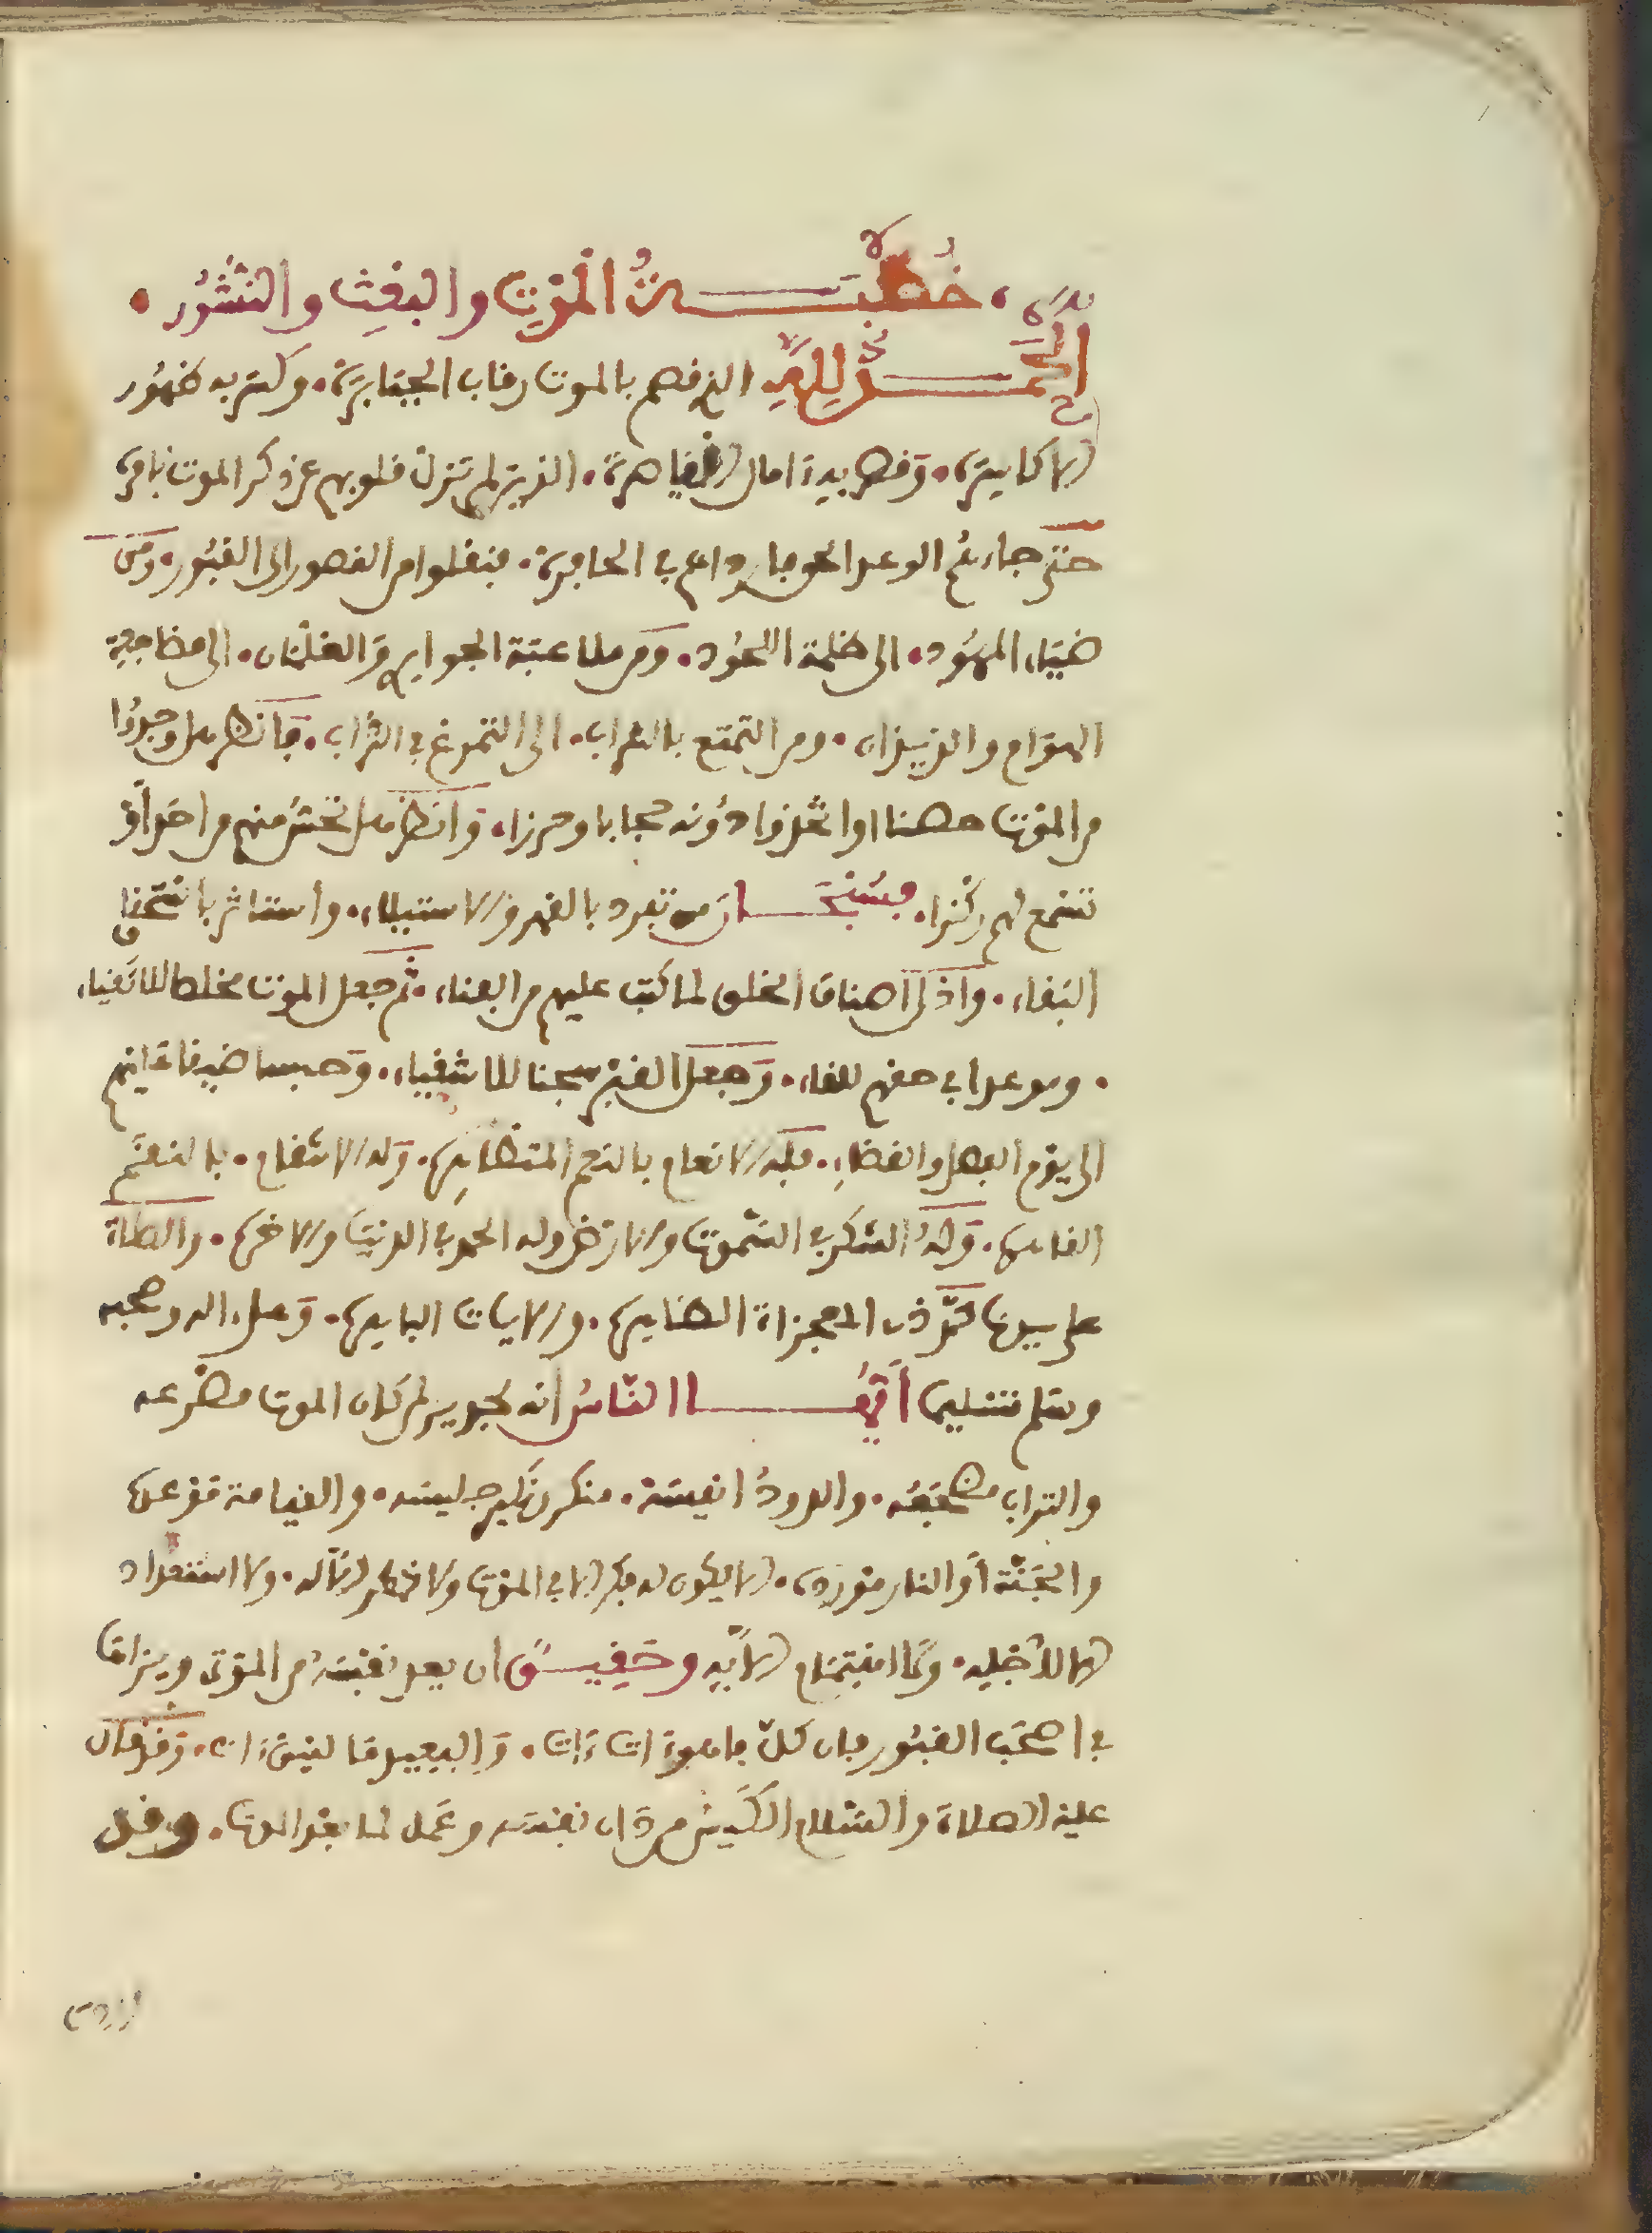 خُطْبَةُ الْمَوْتِ والبعثِ والنُّشُور
الحَمْدُ لِلهِ الذي قصم بالموت رقاب الجبابرة. وكسر به ظهُور
الاكاسرة. وقصر به ءامال القياصرة. الذين لم تزل قلوبهم عن ذكر الموت نافرة
حتى جاءهم الوعد الحق فارداهم في الحافرة. فنقلوا من القصور الى القبُور. ومن
ضياء المهُود. الى ظلمة اللحُود. ومن ملاعبة الجواري والغلمان. الى مقاسية
الهوام والديدان. ومن التمتع بالشراب. الى التمرغ في التُّراب. فانظر هل وجدُوا
من الموت حصنا او اتخذوا دُونه حجابا وحرزا. وانظر هل تحسّ منهم من احد أو
تسمع لهم ركْزا. فسُبْحَان من تفرد بالقهر والاستيلاء. واستاثر باستحقاق
البقاء. واذل اصناف الخلق لما كتب عليهم من الفناء. ثم جعل الموت مخلصا للاتقياء
. وموعدا في حقهم للقاء. وجعل القبر سجنا للاشقياء. وحبسا ضيقا عليهم
الى يوم الفصل والقضاء. فله الانعام بالنعم المتظاهرة. وله الانتقام. بالنقم
القاهرة. وله الشكر في السموت والارض وله الحمد في الدنيا والاخرة. والصلاة
على سيدنا محمّد ذي المعجزات الظاهرة. والايات الباهرة. وعلى ءاله وصحبه
وسلم تسليما أَيُّهَا النّاسُ انه لجدير لمن كان الموت مصرعه
والتراب مضجعه. والدودُ انيسه. منكر ونكير جليسه. والقيامة موعده
والجنّة أو النار مورده. الا يكون له فكر الا في الموت ولا ذكر الا له. ولا استعداد
الا لأجله. ولا اهتمام الا به وحَقِيقٌ ان يعد نفسهُ من الموتى ويراها
في اصحب القبُور فان كلّ ما هو ءات ءات. والبعيد ما ليس بءات. وقد قال
عليه الصلاة والسّلام الكيّس من دان نفسه وعمل لما بعد الموت. وقل